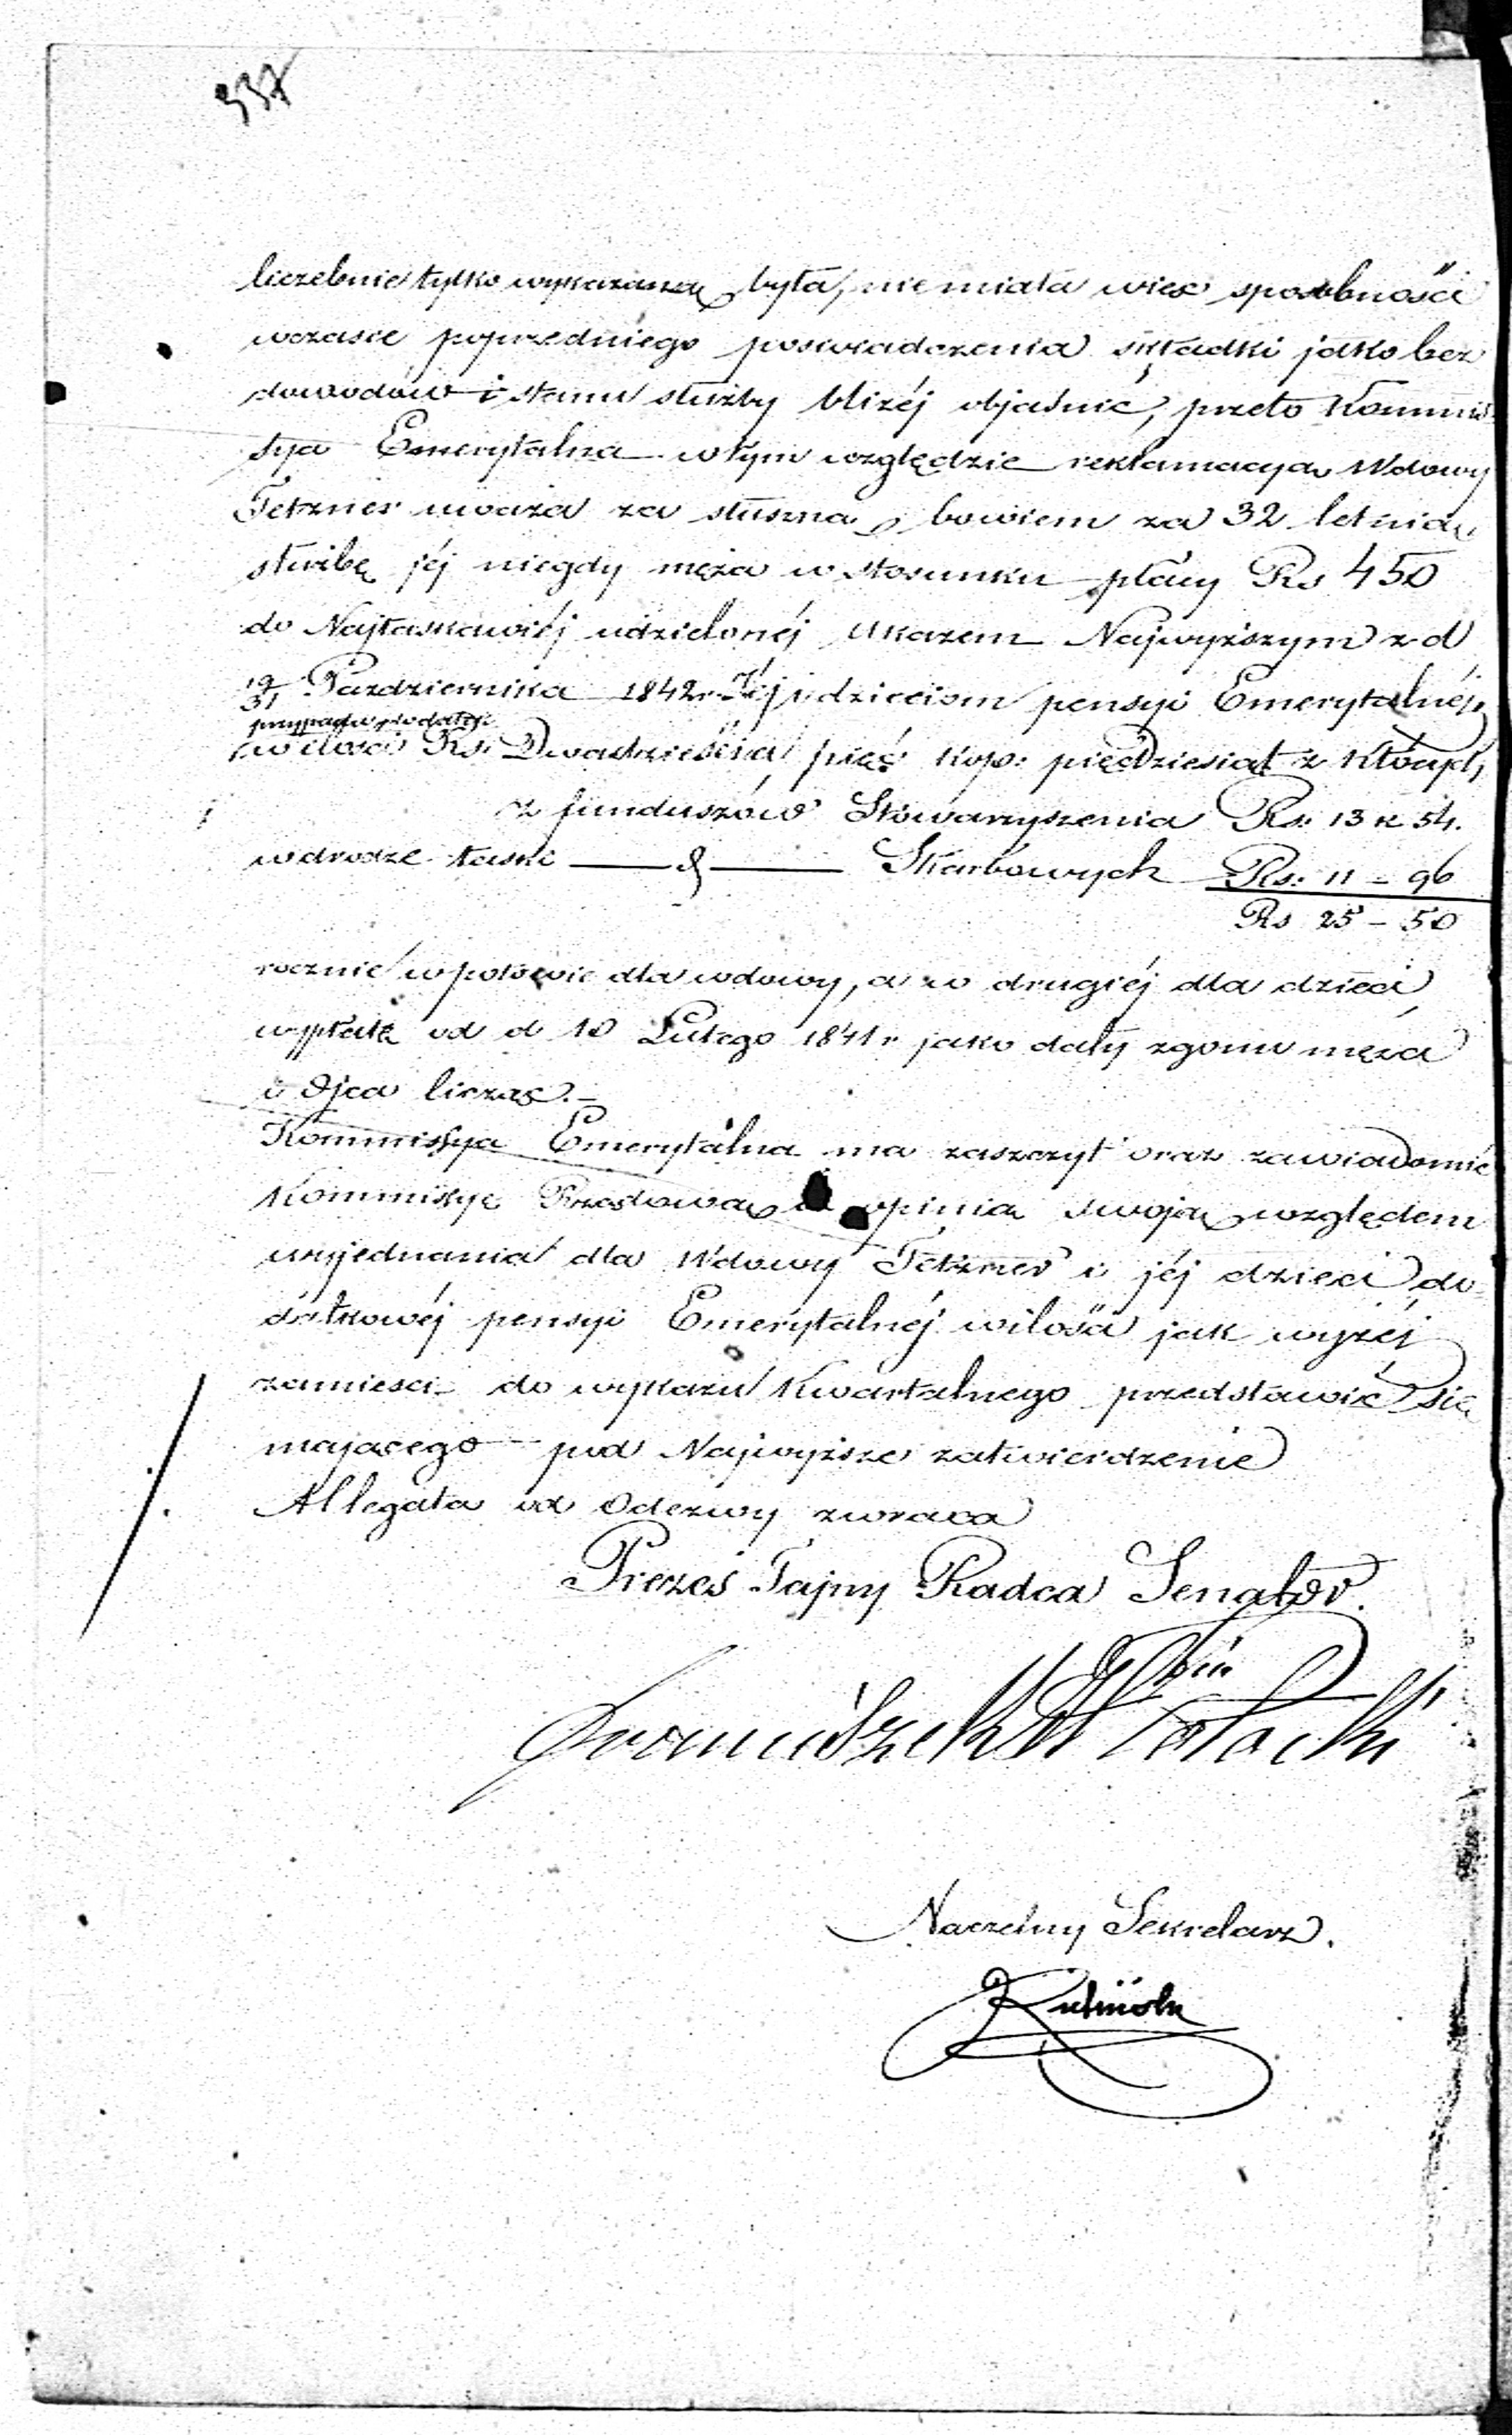 337
liczebnie tylko wykazaną była, nie miała więc sposobności
wczasie poprzedniego poswiadczenia składki jako bez
dowodów i stanu służby bliżéj objaśnić, przeto Kommis-
sya Emerytalna w tym względzie reklamacyą Wdowy
Tetzner uważa za słuszną, bowiem za 32 letnią
służbę jéj niegdy męża w stosunku płacy Rs 450
do Najłaskawiéj udzielonéj Ukazem Najwyższym z d
19/31 Października 1842 r. Jéj i dzieciom pensyi Emerytalnéj,
przypada dodatek
w ilości Rs. Dwadzieścia pięć kop: pięćdziesiąt z których
z funduszów Stowarzyszenia Rs. 13 k 54.
w drodze łaski — d — Skarbowych Rs: 11 – 96
Rs 25 – 50
rocznie w połowie dla wdowy, a w drugiéj dla dzieci
wypłatę od d 10 Lutego 1841 r jako daty zgonu męża
i Ojca licząc.–
Kommissya Emerytalna ma zaszczyt oraz zawiadomić
Kommissyę Rządową opinią swoją względem
wyjednania dla Wdowy Tetzner i jéj dzieci do-
datkowéj pensyi Emerytalnéj wilości jak wyżéj
zamieści do wykazu Kwartalnego przedstawić się
mającego pod Najwyższe zatwierdzenie
Allegata od Odezwy zwraca
Prezes Tajny Radca Senator
Franciszek Potocki
Naczelny Sekretarz.